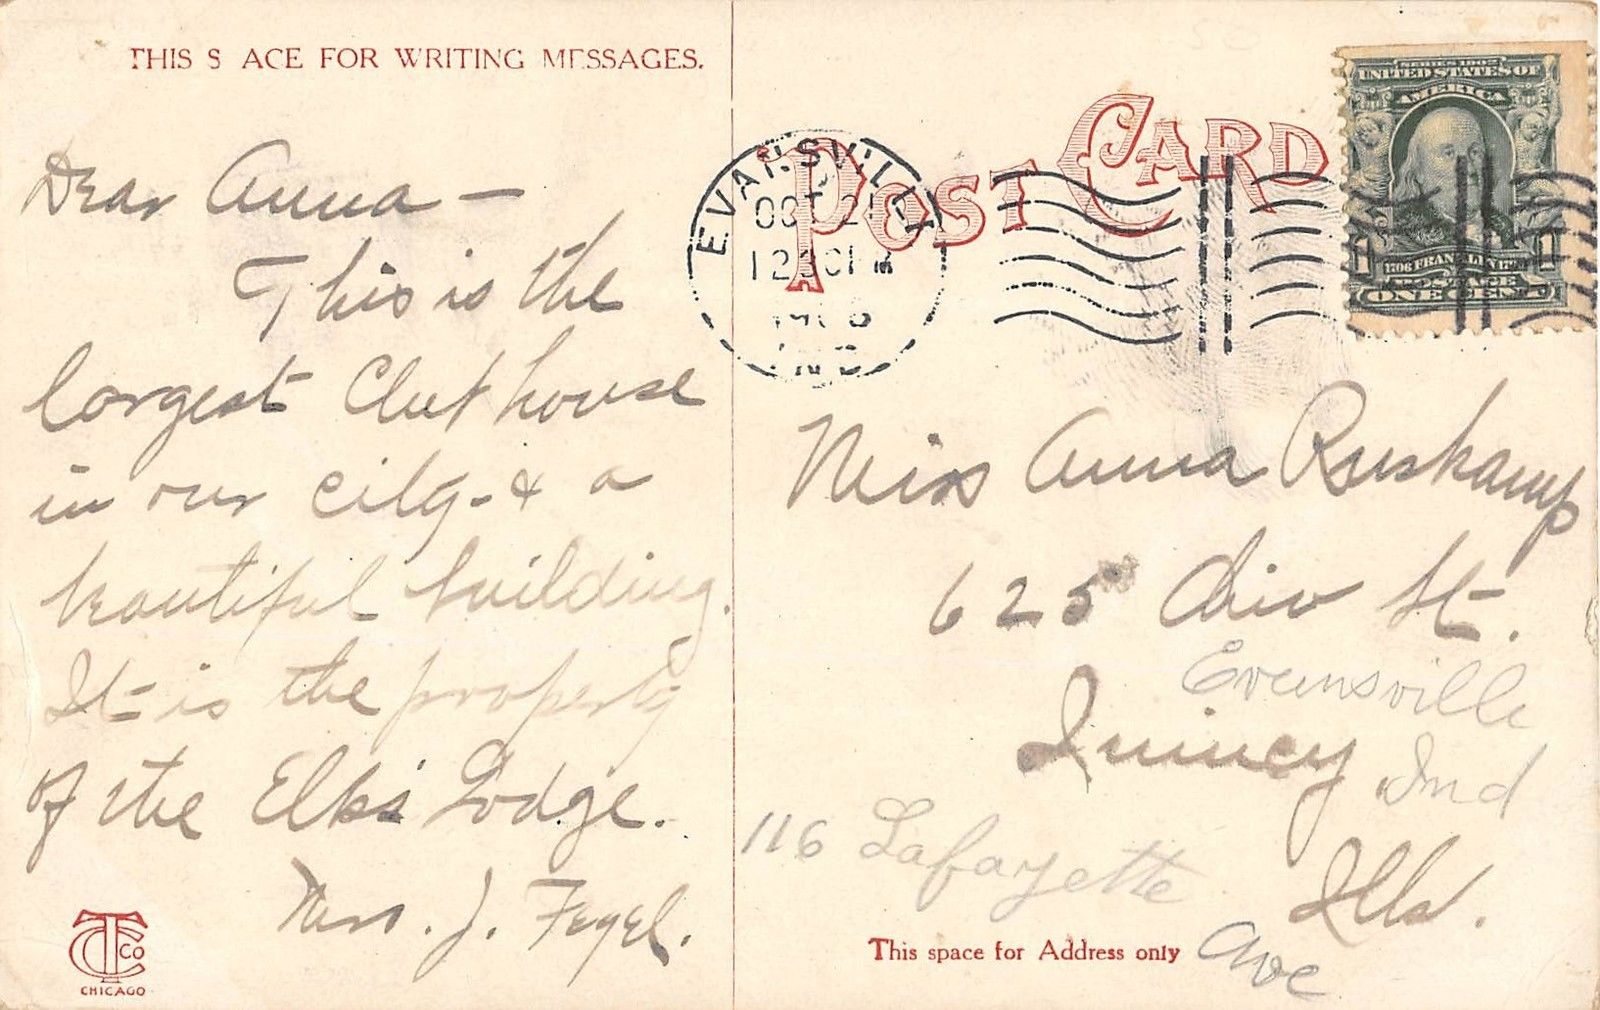 THIS S ACE FOR WRITING MESSAGES.
Dear Anna —
This is the
largest Club house
in our city - & a
beautiful building.
It is the property
of the Elks' Lodge.
Mrs. J. Fegel.
TCT CO
CHICAGO
POST CARD
EVANSVILLE
OCT 21
12
IND
SERIES 1902
UNITED STATES OF
AMERICA
1706 FRANKLIN 17
POSTAGE
ONE CENT
Miss Anna Ruskamp
625 Div St.
Evansville
Quincy Ind
116 Lafayette
Ills.
Ave
This space for Address only